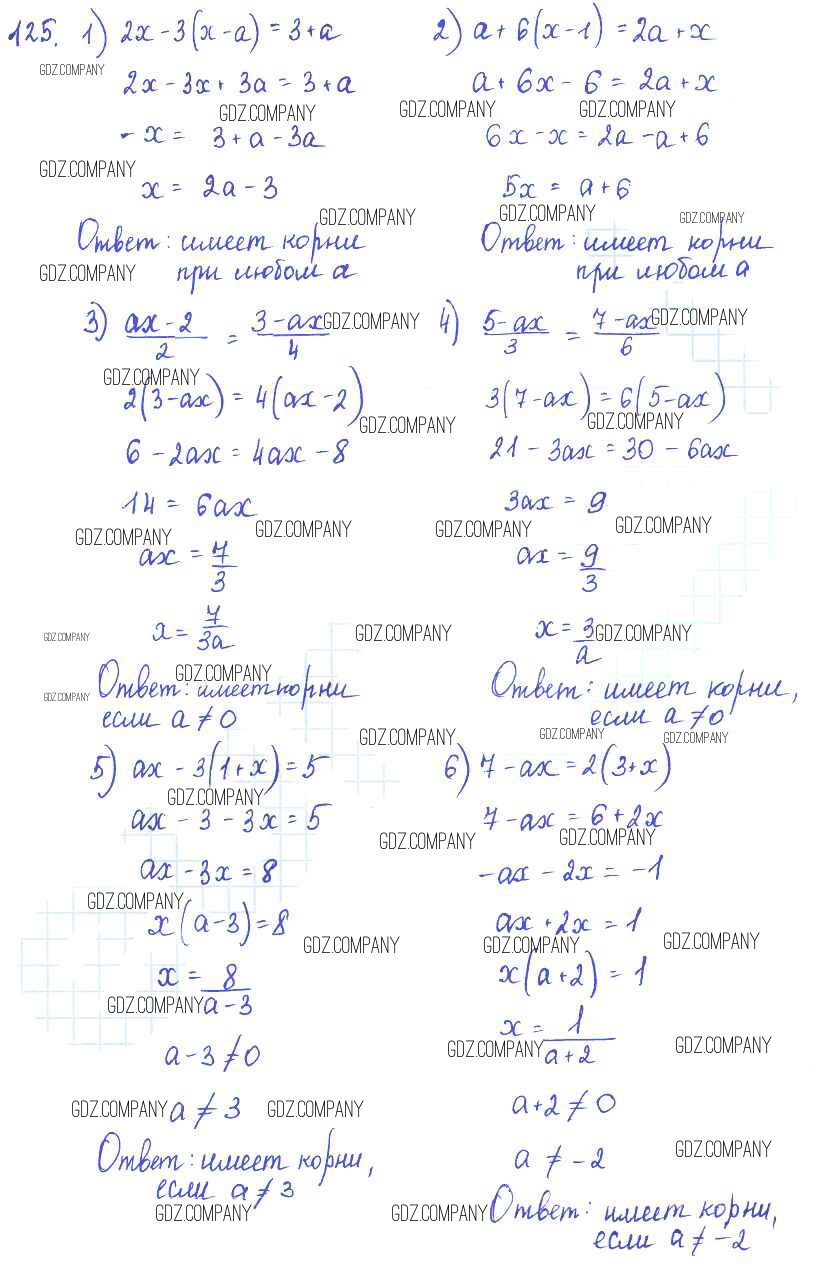 125. 1) 2x - 3(x - a) = 3 + a
GDZ.COMPANY
2x - 3x + 3a = 3 + a
GDZ.COMPANY
- x = 3 + a - 3a
GDZ.COMPANY
x = 2a - 3
GDZ.COMPANY
Ответ: имеет корни
GDZ.COMPANY
при любом a
2) a + 6(x - 1) = 2a + x
a + 6x - 6 = 2a + x
GDZ.COMPANY GDZ.COMPANY
6x - x = 2a - a + 6
5x = a + 6
GDZ.COMPANY GDZ.COMPANY
Ответ: имеет корни
при любом a
3) (ax - 2)/2 = (3 - ax)/4
GDZ.COMPANY
GDZ.COMPANY
2(3 - ax) = 4(ax - 2)
GDZ.COMPANY
6 - 2ax = 4ax - 8
14 = 6ax
GDZ.COMPANY GDZ.COMPANY
ax = 7/3
x = 7/3a
GDZ.COMPANY GDZ.COMPANY
GDZ.COMPANY
Ответ: имеет корни
GDZ.COMPANY
если a ≠ 0
4) (5 - ax)/3 = (7 - ax)/6
GDZ.COMPANY
3(7 - ax) = 6(5 - ax)
GDZ.COMPANY
21 - 3ax = 30 - 6ax
3ax = 9
GDZ.COMPANY GDZ.COMPANY
ax = 9/3
x = 3/a
GDZ.COMPANY
Ответ: имеет корни,
если a ≠ 0
GDZ.COMPANY GDZ.COMPANY GDZ.COMPANY
5) ax - 3(1 + x) = 5
GDZ.COMPANY
ax - 3 - 3x = 5
ax - 3x = 8
GDZ.COMPANY
x(a - 3) = 8
GDZ.COMPANY
x = 8/(a - 3)
GDZ.COMPANY
a - 3 ≠ 0
GDZ.COMPANY a ≠ 3 GDZ.COMPANY
Ответ: имеет корни,
если a ≠ 3
GDZ.COMPANY
6) 7 - ax = 2(3 + x)
7 - ax = 6 + 2x
GDZ.COMPANY GDZ.COMPANY
-ax - 2x = -1
ax + 2x = 1
GDZ.COMPANY GDZ.COMPANY
x(a + 2) = 1
x = 1/(a + 2)
GDZ.COMPANY GDZ.COMPANY
a + 2 ≠ 0
a ≠ -2
GDZ.COMPANY
GDZ.COMPANY
Ответ: имеет корни,
если a ≠ -2